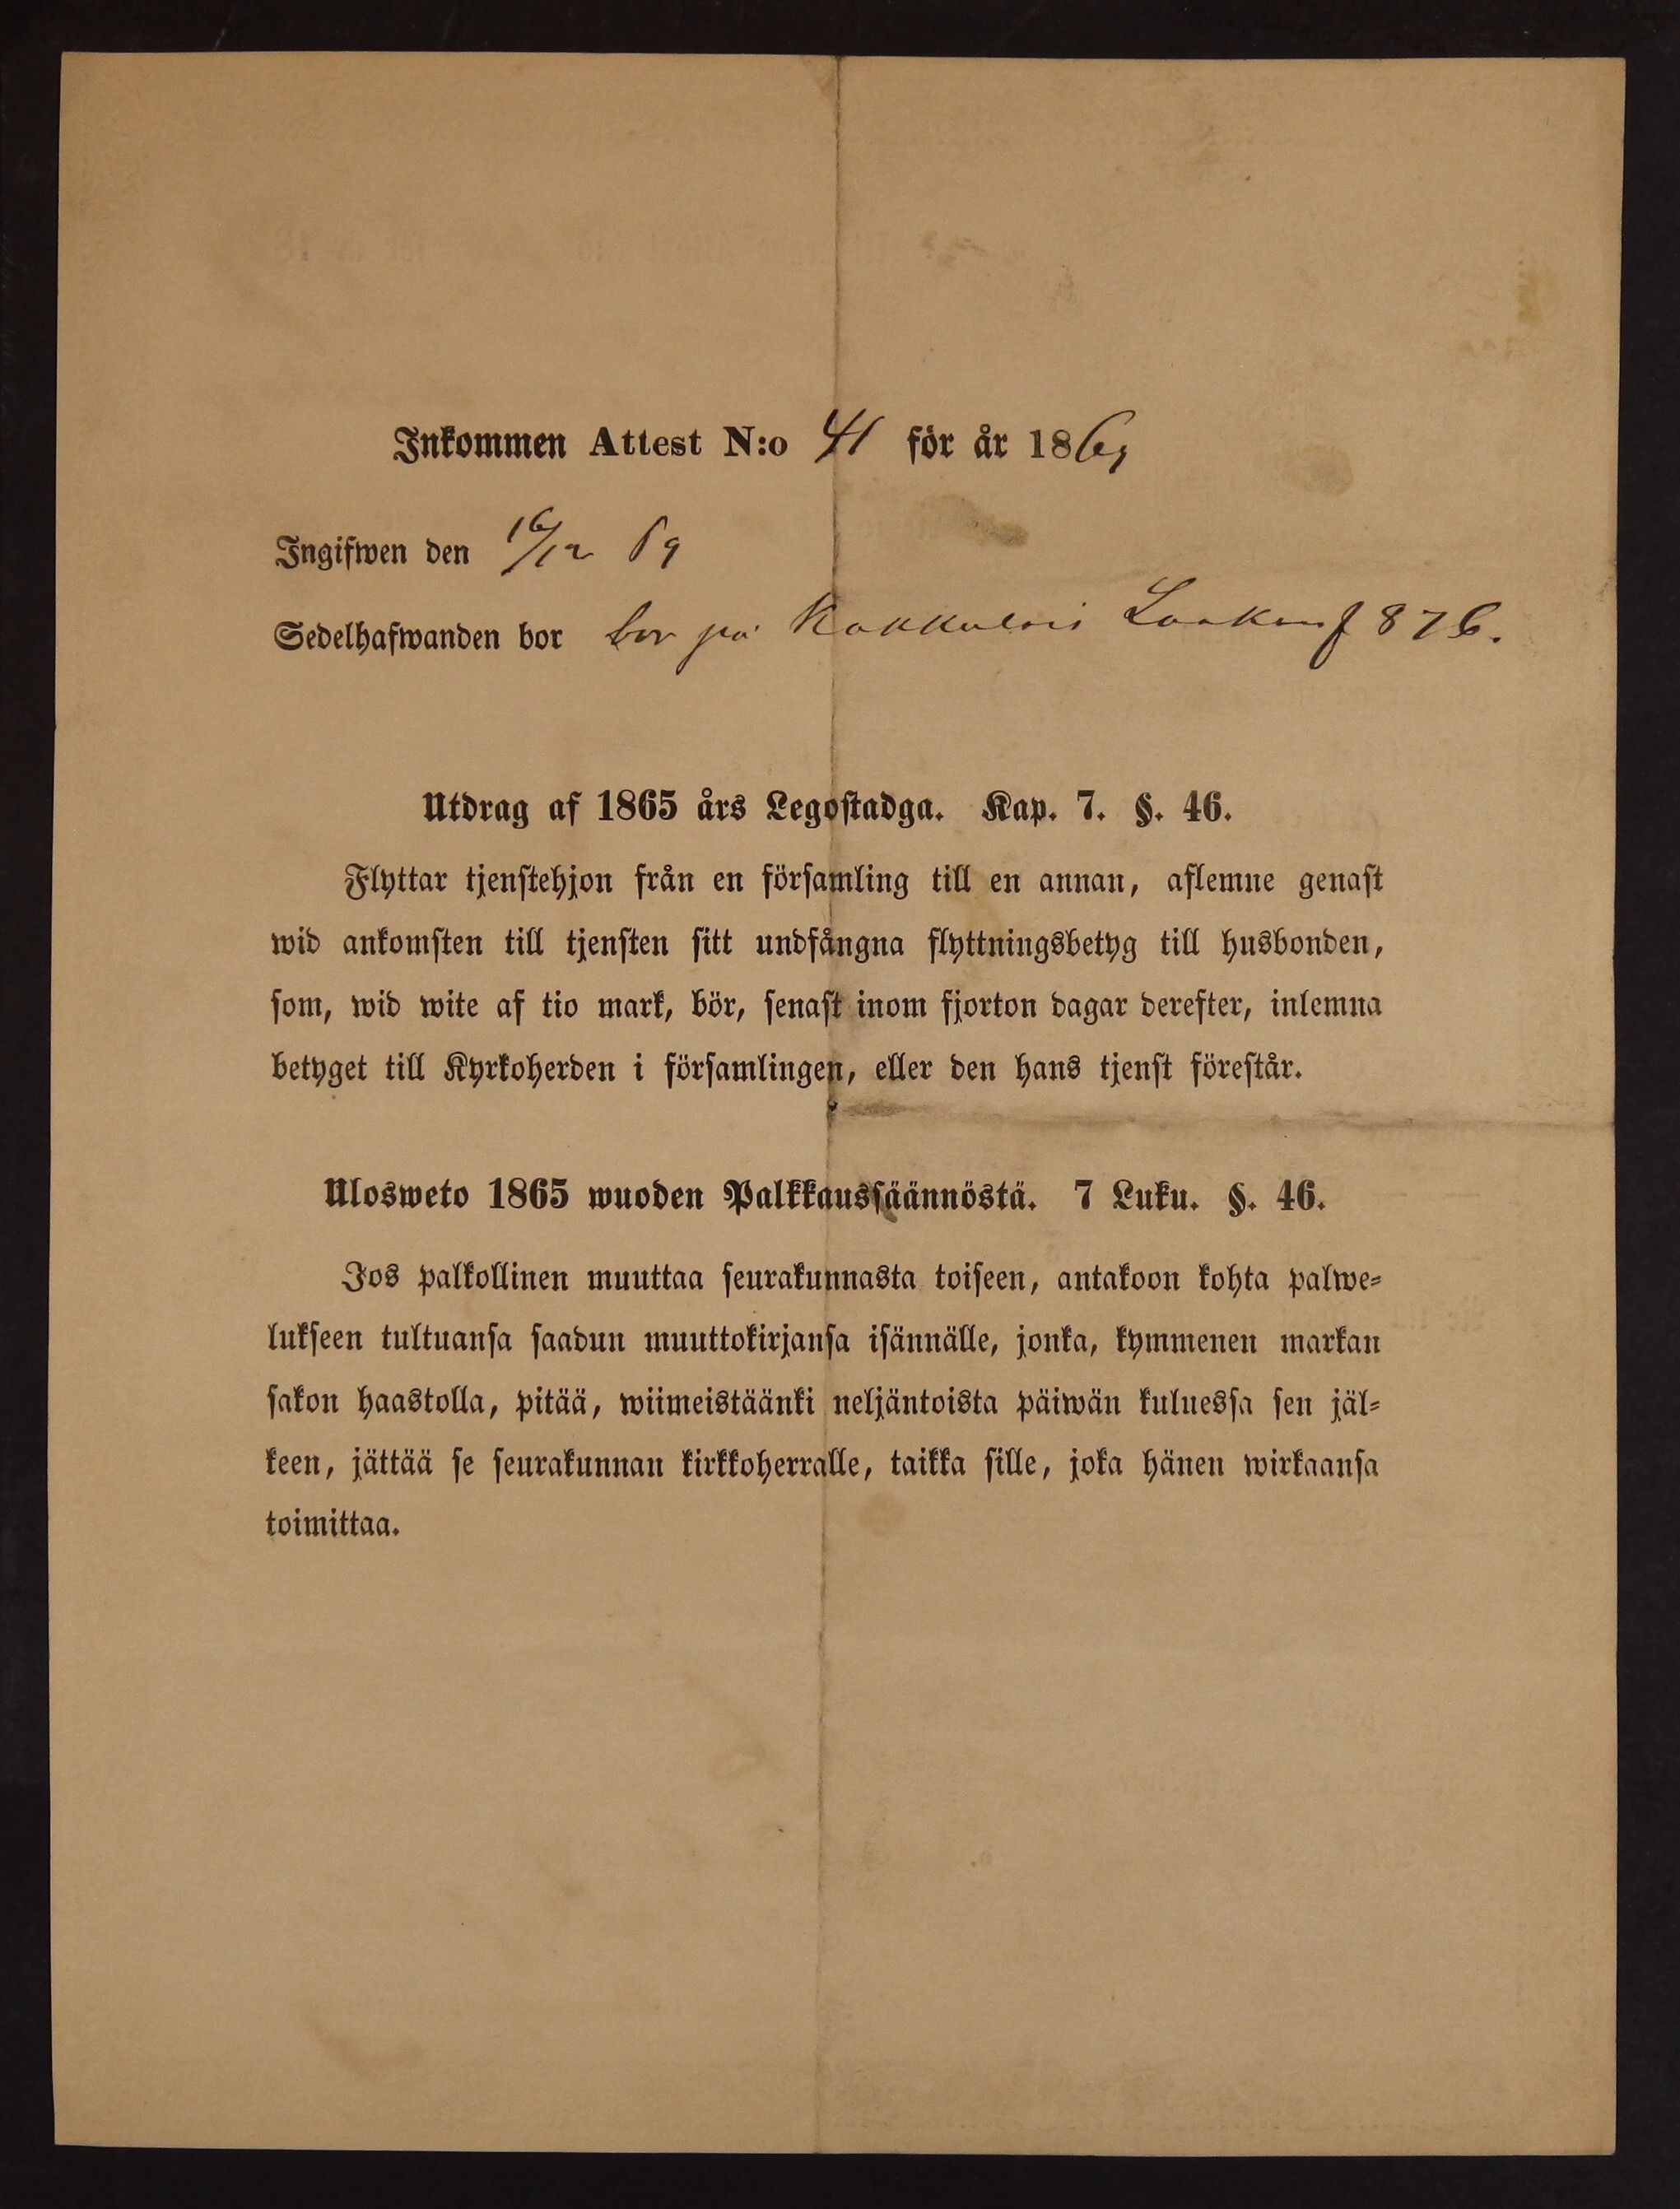 Inkommen Attest N:o 41 för år 1869
Ingifwen den 16/12 69
Sedelhafwanden bor bor på 876.
Utdrag af 1865 års Legostadga. Kap. 7. §. 46.
Flyttar tjenstehjon från en församling till en annan, aflemne genast
wid ankomsten till tjensten sitt undfångna flyttningsbetyg till husbonden,
som, wid wite af tio mark, bör, senast inom fjorton dagar derefter, inlemna
betyget till Kyrkoherden i församlingen, eller den hans tjenst förestår.
Ulosweto 1865 wuoden Palkkaussäännöstä. 7 Luku. §. 46.
Jos palkollinen muuttaa seurakunnasta toiseen, antakoon kohta palwe=
lukseen tultuansa saadun muuttokirjansa isännälle, jonka, kymmenen markan
sakon haastolla, pitää, wiimeistäänki neljäntoista päiwän kuluessa sen jäl=
keen, jättää se seurakunnan kirkkoherralle, taikka sille, joka hänen wirkaansa
toimittaa.